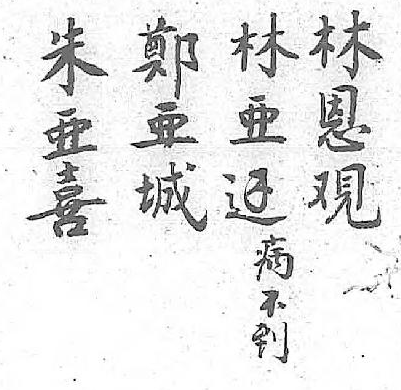 林恩观
林亜迓病不到
鄭亜城
朱亜喜